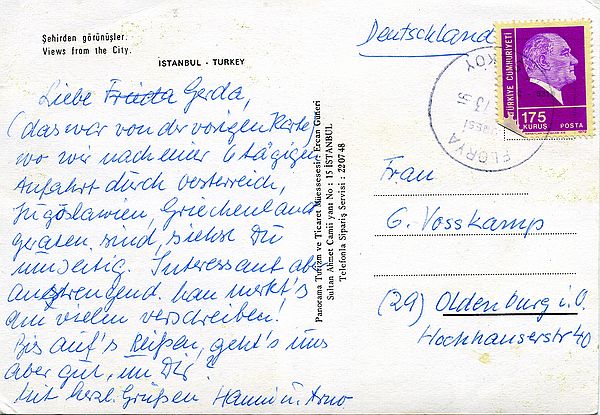 Şehirden görünüşler.
Views from the City.
ISTANBUL - TURKEY
Liebe Frieda Gerda,
(das war von der vorigen Karte)
wo wir nach einer 6 tägigen
Anfahrt durch Oesterreich,
Jugoslawien, Griechenland
geraten sind, siehst Du
umseitig. Interessant aber
anstrengend. Man merkt's
am vielen verschreiben!
Bis auf's Reißen, geht's uns
aber gut, un Dir?
Mit herzl. Grüßen Hanni u. Arno
Panorama Turizm ve Ticaret Müessesesi: Ercan Gülleri
Sultan Ahmet Camii yanı No : 15 İSTANBUL
Telefonla Sipariş Servisi : 22 07 48
Deutschland
TÜRKİYE CUMHURİYETİ
175
KURUŞ POSTA
FLORYA
Frau
G. Vosskamp
(29) Oldenburg i. O.
Hochhauserstr 40